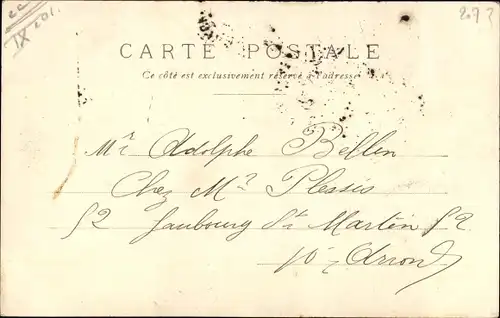 207?
CARTE POSTALE
Ce côté est exclusivement réservé à l'adresse
Mr Adolphe Bellen
Chez Mr Plessis
52 faubourg St Martin 52
10e Arrond